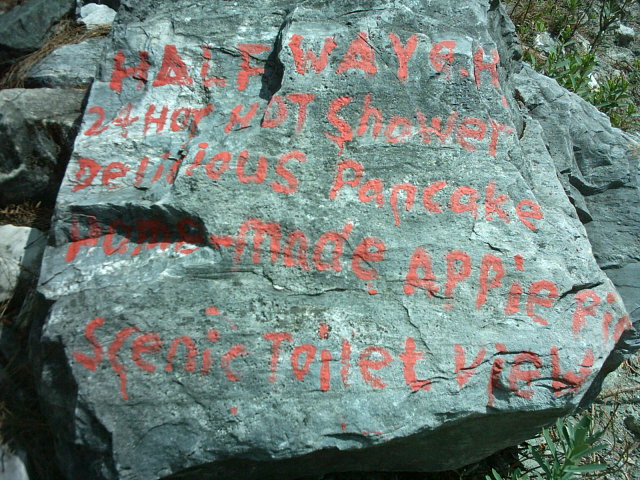 HALFWAY G.H
24 Hor HOT Shower
Delicious Pancake
Home-Made Appie Pie
Scenic Toilet View